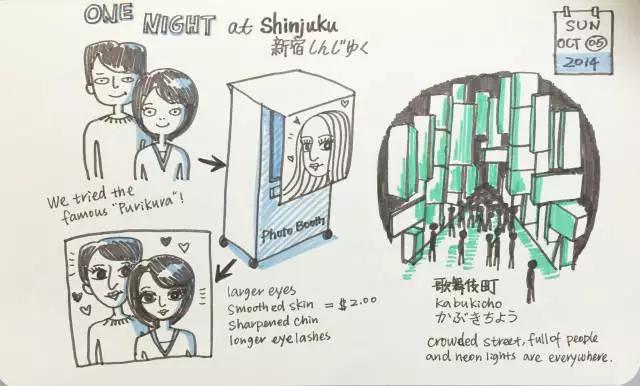 ONE NIGHT at Shinjuku
新宿しんじゅく
SUN
OCT 05
2014
We tried the
famous "Purikura"!
Photo Booth
larger eyes
Smoothed skin = $2.00
Sharpened chin
longer eyelashes
歌舞伎町
kabukicho
かぶきちょう
crowded street, full of people
and neon lights are everywhere.